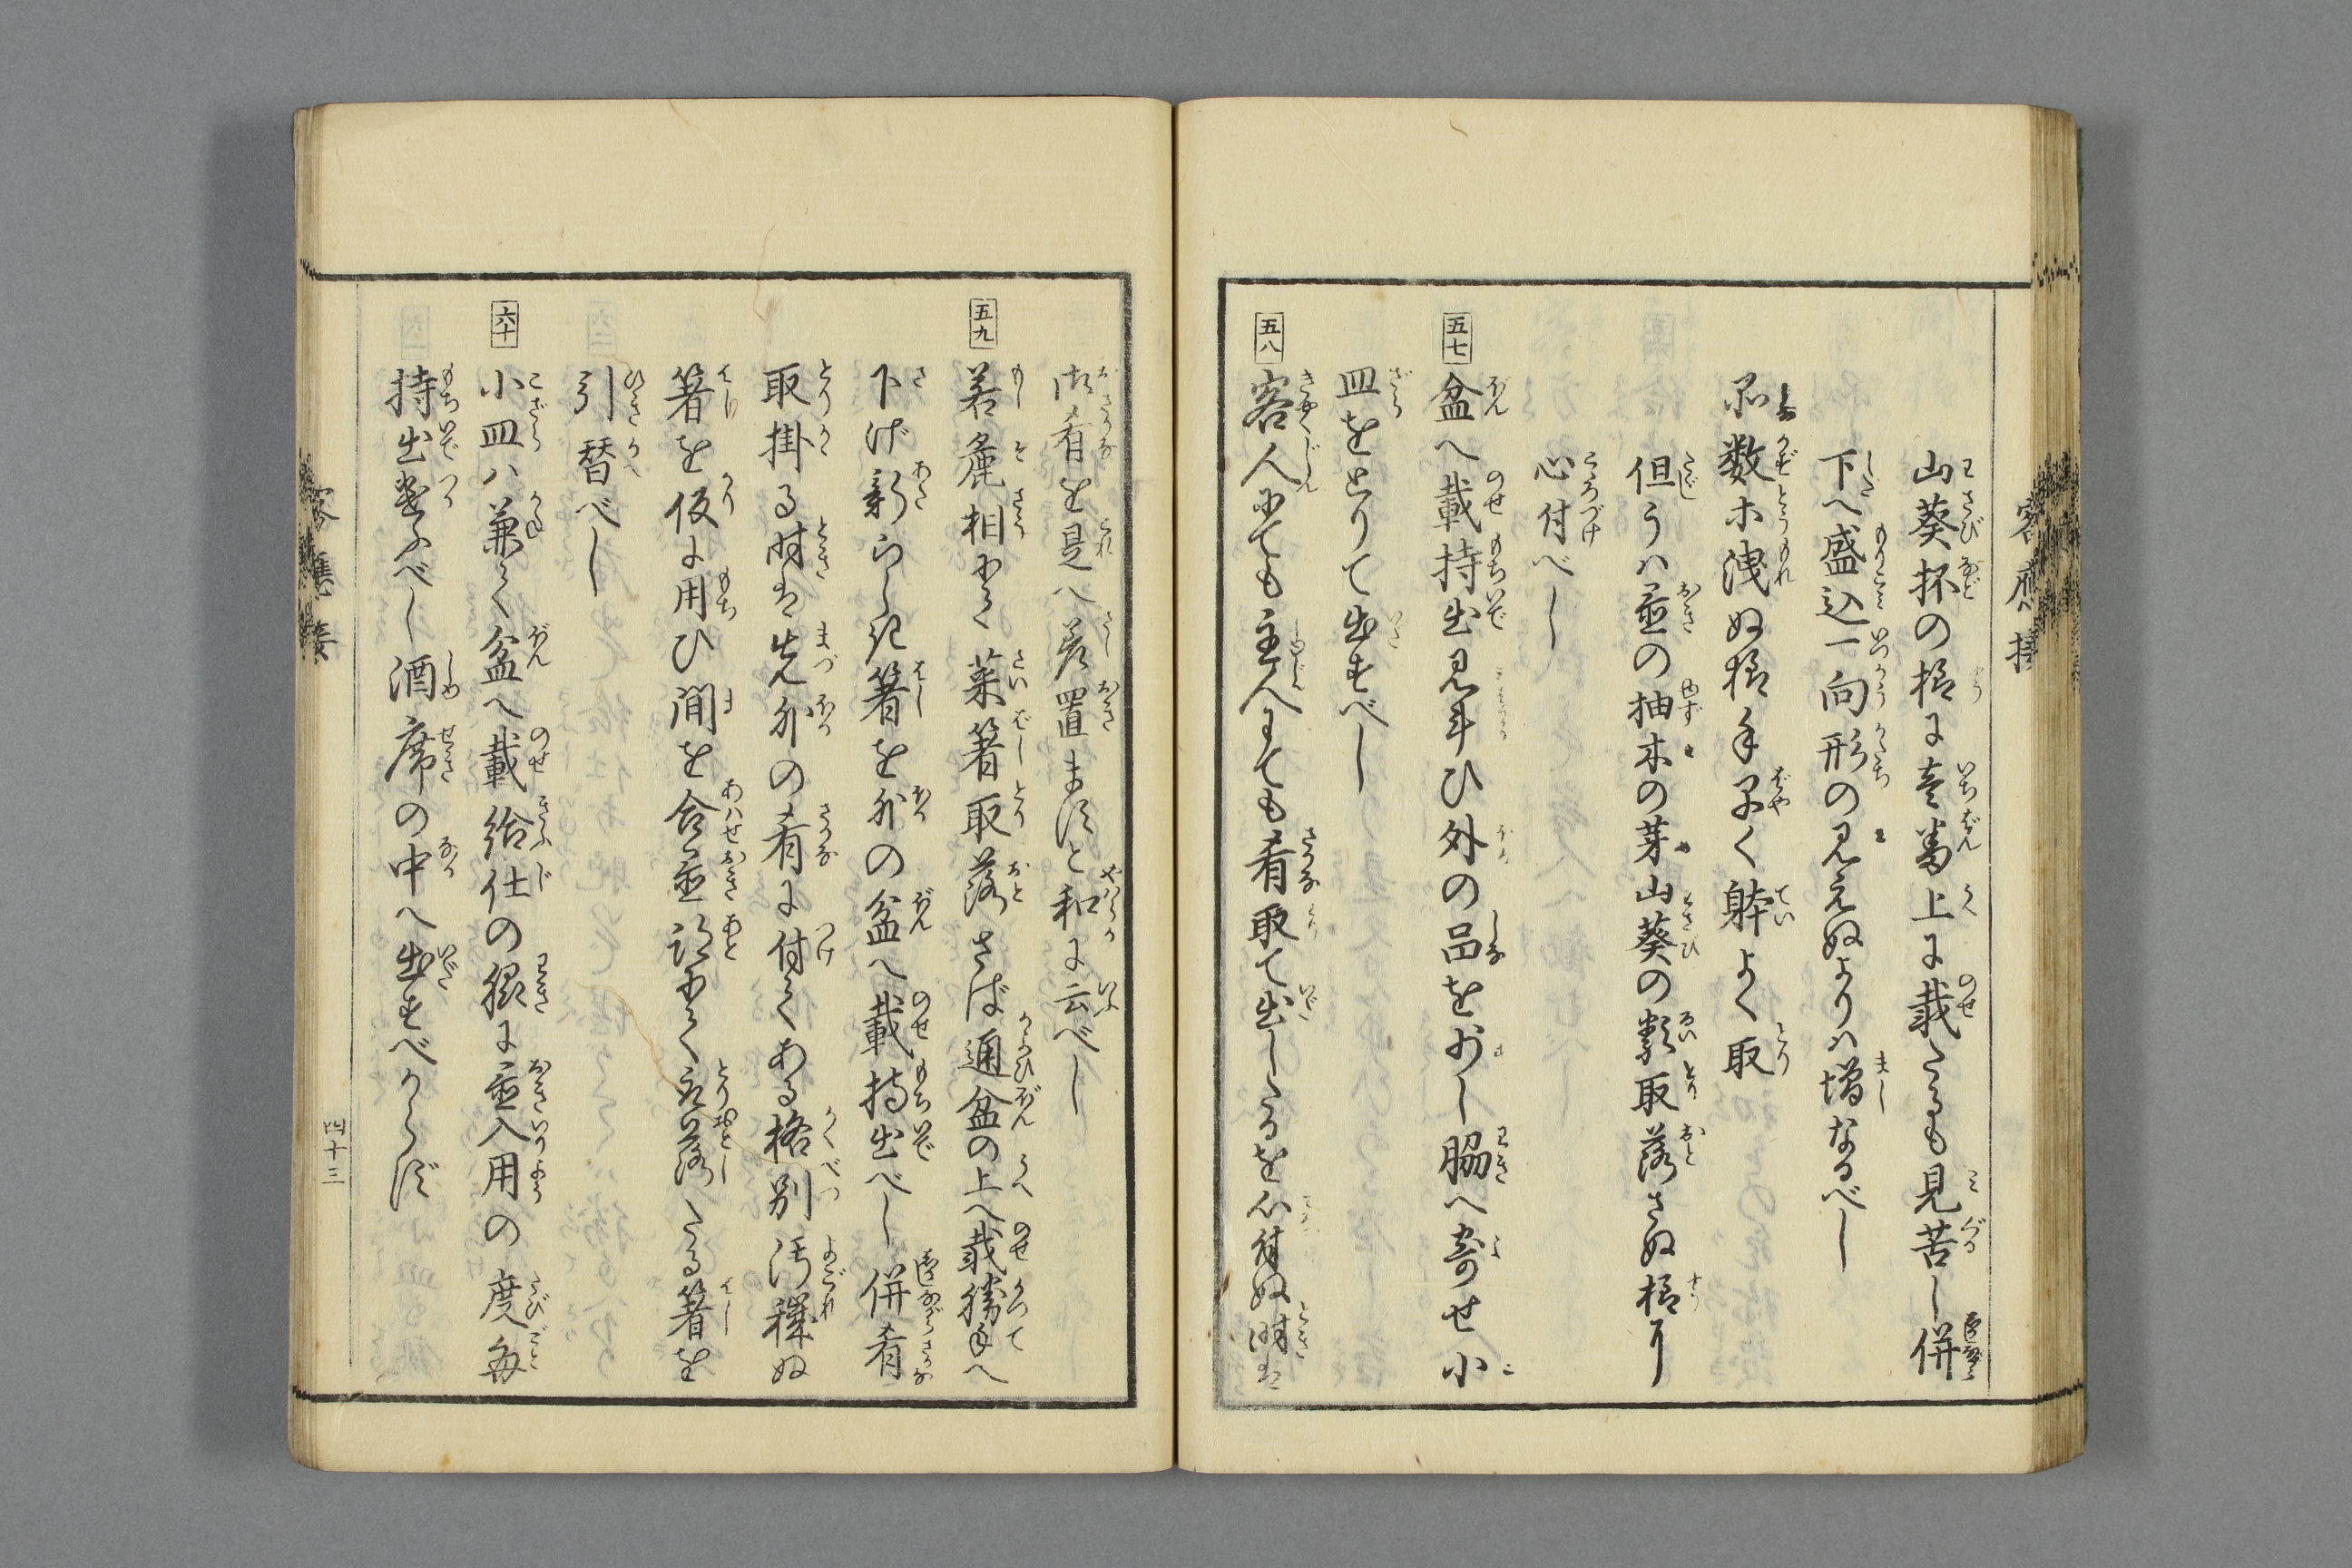 山葵抔の様に壱番上に載たるも見苦し併
下へ盛込一向形の見えぬよりハ増なるべし
品数等洩ぬ様手早く躰よく取
但うハ置の柚木の芽山葵の類取落さぬ様に
心付べし
五七 盆へ載持出見斗ひ外の品を少し脇へ寄せ小
皿をとりて出すべし
五八 客人にても主人にても肴取て出したるを心付ぬ時は
御肴を是へ差置ますと和に云べし
五九 若麁相にて菜箸取落さば通盆の上へ載勝手へ
下げ新らしき箸を外の盆へ載持出べし併肴
取掛る時は先外の肴に付てある格別汚穢ぬ
箸を仮に用ひ間を合置跡にて取落したる箸を
引替べし
六十 小皿ハ兼て盆へ載給仕の脇に置入用の度毎
持出遣ふべし酒席の中へ出すべからず
客應接
四十三